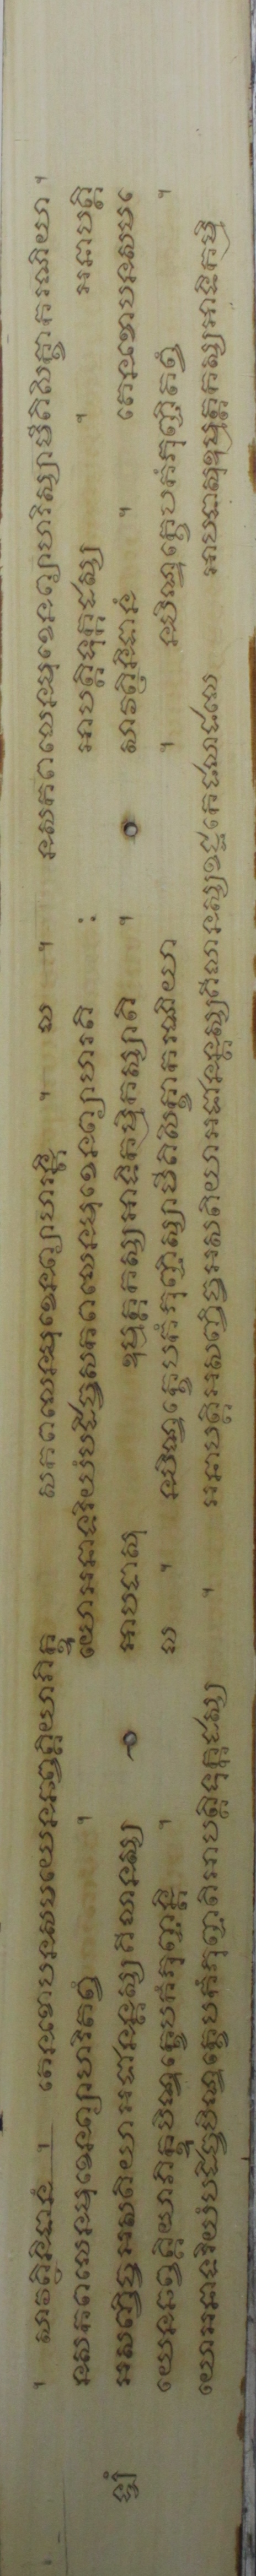 ។ សាវត្ថិនិទានំ ។ តេនខោបនសមយេនឆព្វគ្គិយាភិក្ខូ សកពលេនមុខេនព្យាហរន្តិ ។ ល ។ នសកពលេនមុខេនព្យាហរិស្សាមីតិសិក្ខាករណិយា ។
នសកពលេនមុខេនព្យាហរិតព្ពំ ។ យោអនាទរិយំបដិច្ចសកពលេនមុខេនព្យាហរតិ : អាបត្តិទុក្កដស្ស ។ អនាបត្តិ
អសញ្ចិច្ចអសតិយាអជានន្តស្សគិលានស្ស អាបទាសុ ឧម្មត្តកស្សអាទិកម្មិកស្សាតិ ។ សាវត្ថិនិទានំ ។ តេនខោបនសមេ
យេនឆព្វគ្គិយាភិក្ខូបិណ្ឌុក្ខេបកំភុញ្ជន្តិ ។ ល ។ នបិណ្ឌុក្ខេបកំភុញ្ជិស្សាមីតិសិក្ខាករណិយា ។ នបិណ្ឌុក្ខេបកំភុញ្ជិតព្ពំ ។
យោអនាទរិយំបដិច្ចបិណ្ឌុក្ខេបកំភុញ្ជតិអាបត្តិទុក្កដស្ស ។ អនាបត្តិអសញ្ចិច្ចអសតិយាអជានន្តស្សគិលានស្សខជ្ជកេផលាផលេ អាបទាសុឧម្មត្តកស្សអាទិកម្មិ